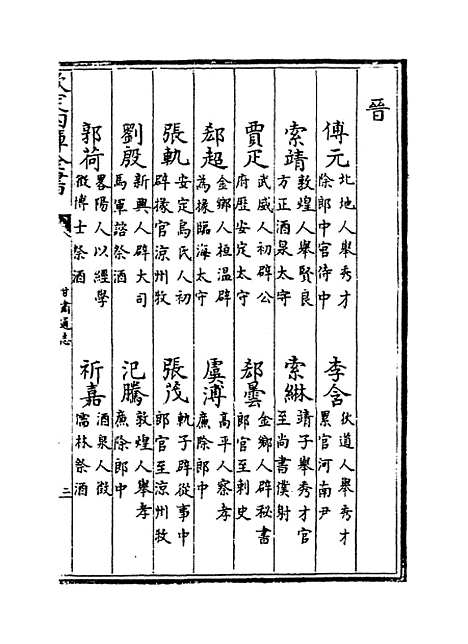 晉
傅元 北地人舉秀才
除郎中官侍中
李含 狄道人舉秀才
累官河南尹
索靖 敦煌人舉賢良
方正酒泉太守
索綝 靖子舉秀才官
至尚書僕射
賈疋 武威人初辟公
府歴安定太守
郄曇 金鄉人辟秘書
郎官至刺史
郄超 金鄉人桓温辟
為掾臨海太守
虞溥 高平人察孝
廉除郎中
張軌 安定烏氏人初
辟掾官涼州牧
張茂 軌子辟從事中
郎官至涼州牧
劉殷 新興人辟大司
馬軍諮祭酒
氾騰 敦煌人舉孝
廉除郎中
郭荷 畧陽人以經學
徵博士祭酒
祈嘉 酒泉人徵
儒林祭酒
欽定四庫全書
甘肅通志
三